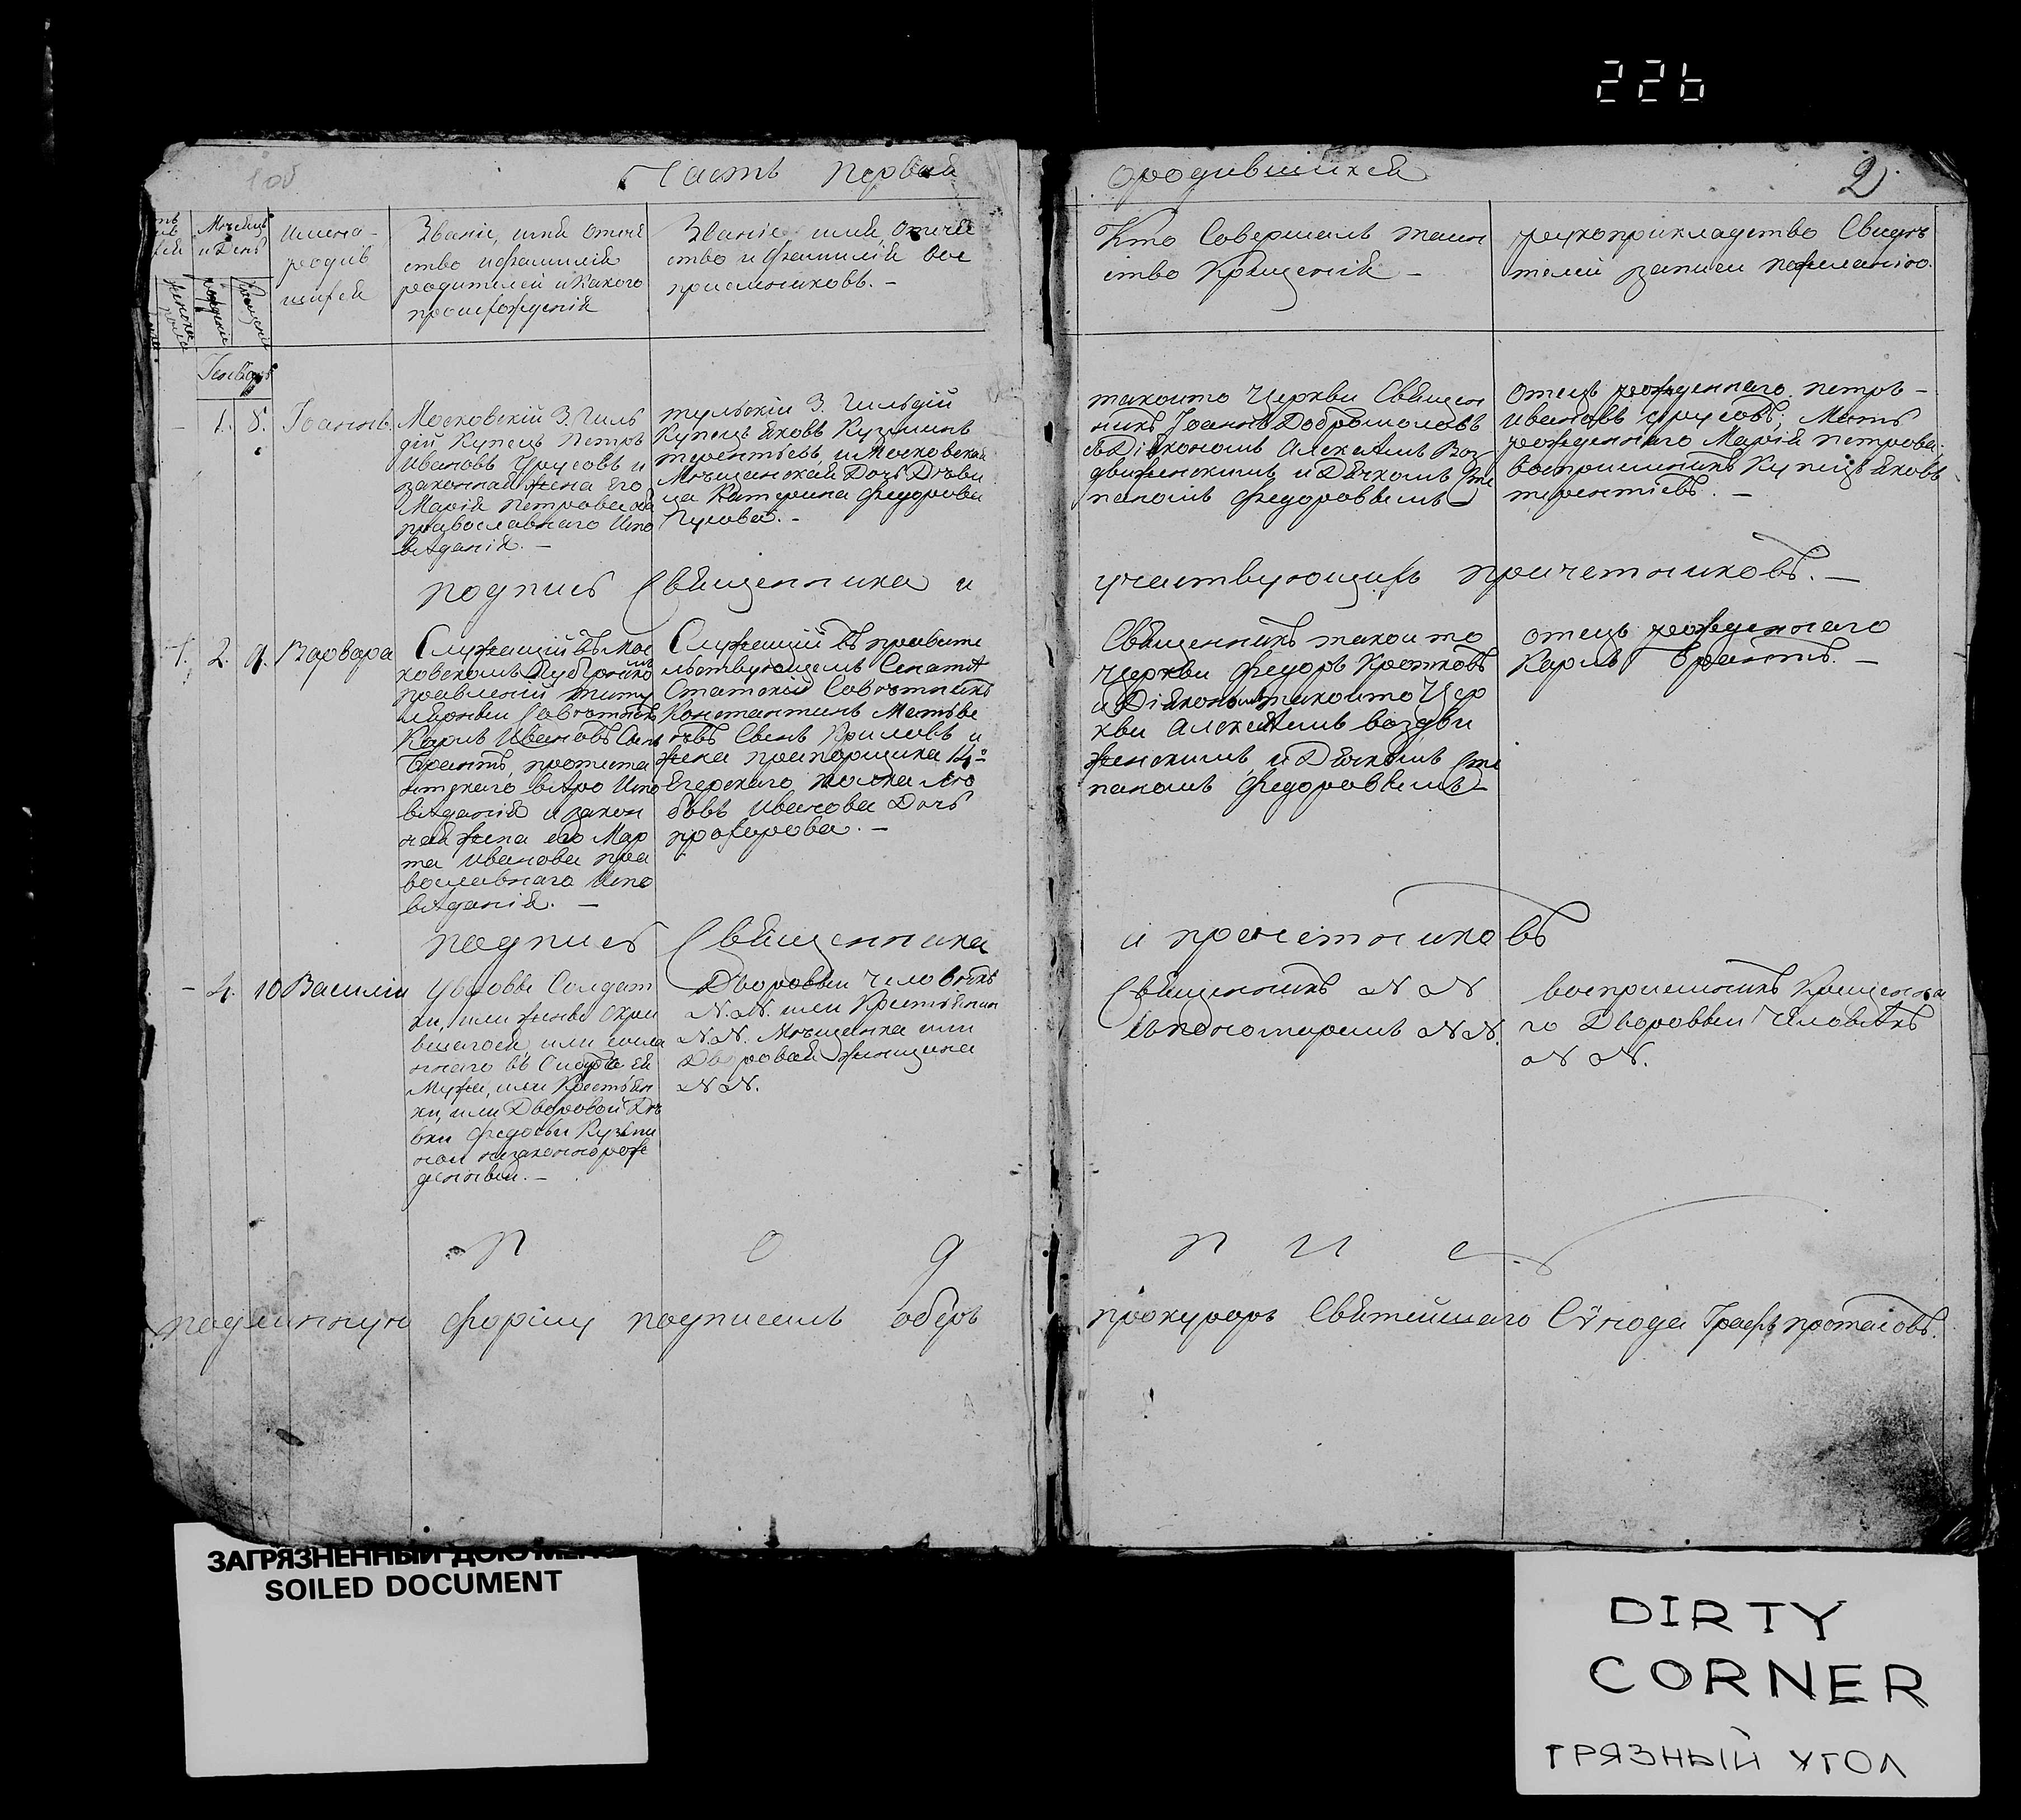 226
Часть Первая
о родившихся
2
Мѣсяцъ
и День
рожденія
Крещенія
имена
родив
шихся
Званіе, имя отече
ство и фамилія
родителей и какого
происхожденія
Званіе имя, отече
ство и фамилія вос
приемниковъ. –
Кто Совершалъ таин
ство Крещенія –
рукоприкладство Свидѣ
телей записи по желанію.
Генварь
– 1. 8. Іоаннъ.
Московскій 3. Гиль
діи Купецъ Петръ
Ивановъ Урусовъ и
законная жена Его
Марія Петрова оба
православнаго Испо
вѣданія. –
тульскій 3. Гильдіи
Купецъ Яковъ Кузминъ
терентьевъ и Московская
Мѣщанская Дочь Дѣви
ца Катерина Федорова
Гусова. –
такоито Церкви Священ
никъ Іоаннъ Добромоловъ
съ Діякономъ Алексѣемъ Воз
движенскимъ и Дьячкомъ Сте
паномъ Федоровымъ
отецъ рожденнаго Петръ –
Ивановъ Урусовъ; Мать
рожденнаго Марія Петрова.
восприемникъ Купецъ Яковъ
терентіевъ. –
подпись Священника и
участвующихъ причетниковъ. –
1. 2. 9. Варвара
Служащій въ Мос
ковскомъ Губернско
правленіи титу
лярный Совѣтникъ
Карлъ Ивановъ Сынъ
Брантъ, протеста
нтскаго вѣро Испо
вѣданія и закон
ная жена его Мар
та Иванова пра
вославнаго Испо
вѣданія. –
Служащій въ правите
льствующемъ Сенатѣ
Статскій Совѣтникъ
Константинъ Матвѣе
евъ Сынъ Криловъ и
жена прапорщика 14го
Егерскаго полка Лю
бовь Иванова Дочь
прохорова. –
Священникъ такоито
Церкви Федоръ Кротковъ
и Діякономъ такоито Цер
кви Алексѣемъ воздви
женскимъ и Дьячкомъ Сте
паномъ Федоровымъ –
отецъ рожденнаго
Карлъ Брантъ. –
подпись Священника
и причетниковъ
– 4. 10 Василій
У вдовы Солдат
ки, или жены скры
вшагося или сосла
ннаго въ Сибирь ея
Мужа, или Крестьян
ки, или Дворовой Дѣ
вки Федосьи Кузьми
ной незаконнорож
денный. –
Дворовый человѣкъ
N. N. или Крестьянин
N. N. Мѣщанка или
Дворовая женщина
N N.
Священникъ N N
съ пономаремъ N N.
восприемникъ Крещенна
го Дворовый Человѣкъ
N N.
п о д
п и с ь
подлинную форму подписалъ оберъ
прокуроръ Святейшаго Сѵнода Графъ протасовъ.
ЗАГРЯЗНЕННЫЙ ДОКУМЕНТ
SOILED DOCUMENT
DIRTY
CORNER
ГРЯЗНЫЙ УГОЛ